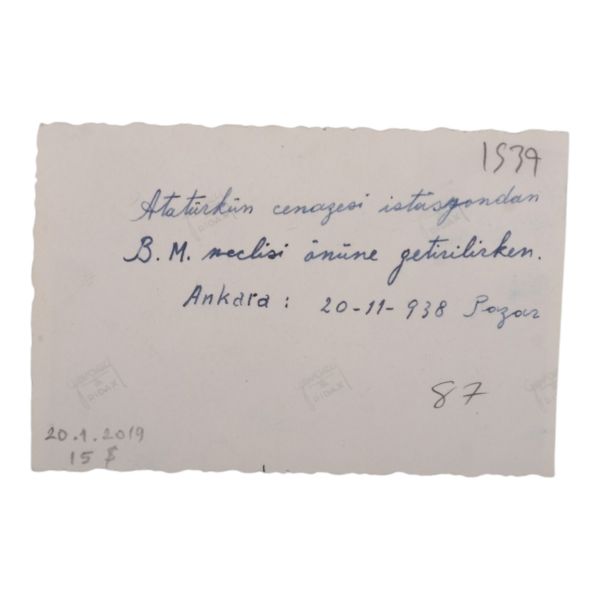 1939
Atatürkün cenazesi istasyondan
B. M. meclisi önüne getirilirken.
Ankara : 20-11-938 Pazar
87
20.1.2019
15 $
RIDAX
RIDAX